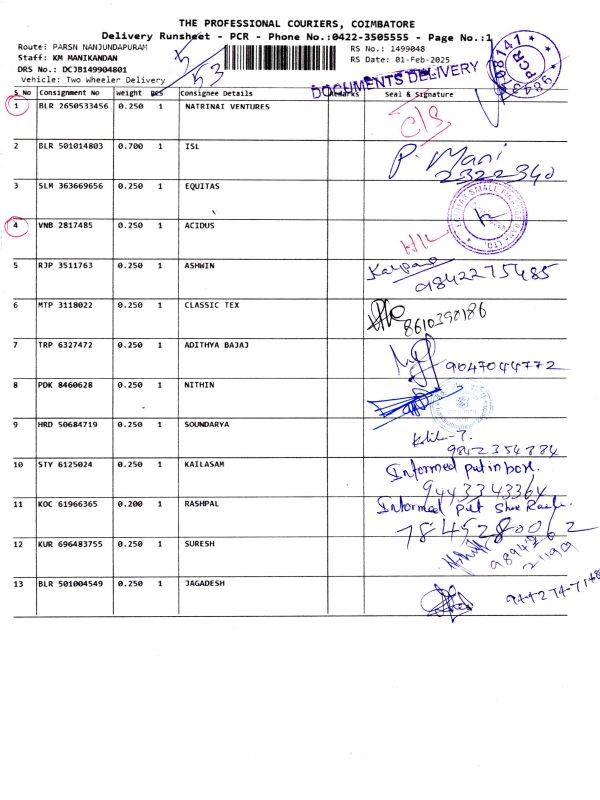 THE PROFESSIONAL COURIERS, COIMBATORE
Delivery Runsheet - PCR - Phone No.:0422-3505555 - Page No.:1
Route: PARSN NANJUNDAPURAM
RS No.: 1499048
Staff: KM MANIKANDAN
RS Date: 01-Feb-2025
DRS No.: DCJB149904801
Vehicle: Two Wheeler Delivery
53
DOCUMENTS DELIVERY
PCR
S No Consignment No Weight PCS Consignee Details Remarks Seal & Signature
1 BLR 2650533456 0.250 1 NATRINAI VENTURES
2 BLR 501014803 0.700 1 ISL P. Mani
2322340
3 SLM 363669656 0.250 1 EQUITAS
4 VNB 2817485 0.250 1 ACIDUS
5 RJP 3511763 0.250 1 ASHWIN
9842275485
6 MTP 3118022 0.250 1 CLASSIC TEX
8610398186
7 TRP 6327472 0.250 1 ADITHYA BAJAJ
9047044772
8 PDK 8460628 0.250 1 NITHIN
9 HRD 50684719 0.250 1 SOUNDARYA
9842354884
10 STY 6125024 0.250 1 KAILASAM Informed put in box.
9443343364
11 KOC 61966365 0.200 1 RASHPAL Informed put Shoe
7845280062
12 KUR 696483755 0.250 1 SURESH
13 BLR 501004549 0.250 1 JAGADESH